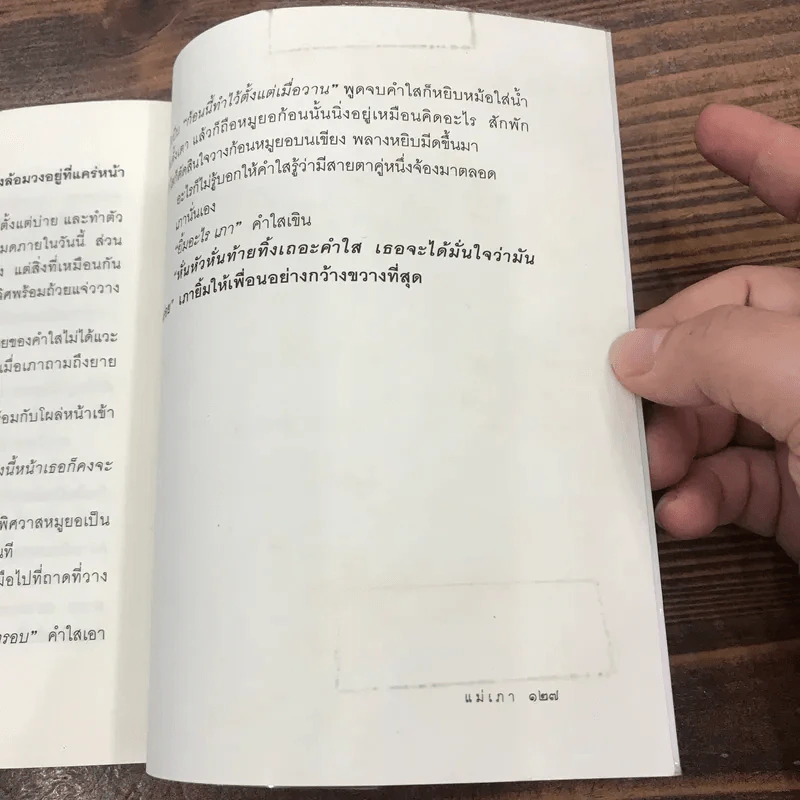 งล้อมวงอยู่ที่แคร่หน้า
ตั้งแต่บ่าย และทำตัว
มดภายในวันนี้ ส่วน
ง แต่สิ่งที่เหมือนกัน
พร้อมถ้วยแจ่ววาง
ยของคำใสไม่ได้แวะ
เมื่อเภาถามถึงยาย
้อมกับโผล่หน้าเข้า
งนี้หน้าเธอก็คงจะ
พิศวาสหมูยอเป็น
นที
มือไปที่ถาดที่วาง
รอบ” คำใสเอา
“ก้อนนี้ทำไว้ตั้งแต่เมื่อวาน” พูดจบคำใสก็หยิบหม้อใส่น้ำ
ตั้งเตา แล้วก็ถือหมูยอก้อนนั้นนิ่งอยู่เหมือนคิดอะไร สักพัก
ตัดสินใจวางก้อนหมูยอบนเขียง พลางหยิบมีดขึ้นมา
อะไรก็ไม่รู้บอกให้คำใสรู้ว่ามีสายตาคู่หนึ่งจ้องมาตลอด
เภานั่นเอง
“ยิ้มอะไร เภา” คำใสเขิน
“หั่นหัวหั่นท้ายทิ้งเถอะคำใส เธอจะได้มั่นใจว่ามัน
เภายิ้มให้เพื่อนอย่างกว้างขวางที่สุด
แม่เภา ๑๒๗